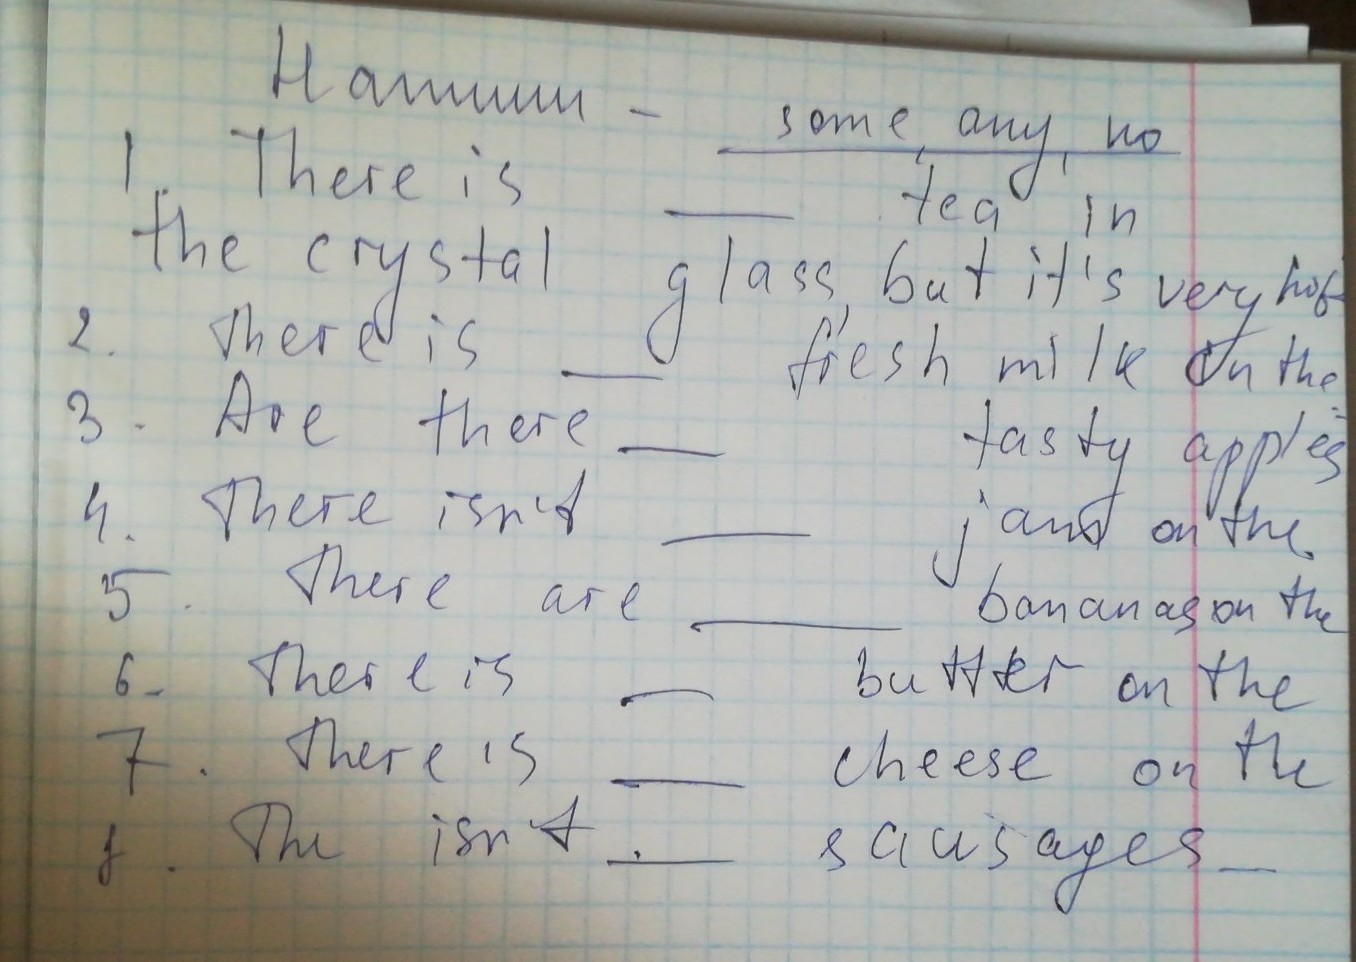 Напиши - some, any, no
1. There is ___ tea in
the crystal glass, but it's very hot
2. There is ___ fresh milk in the
3. Are there ___ tasty apples
4. There isn't ___ jam on the
5. There are ___ bananas on the
6. There is ___ butter on the
7. There is ___ cheese on the
8. The isn't ___ sausages _